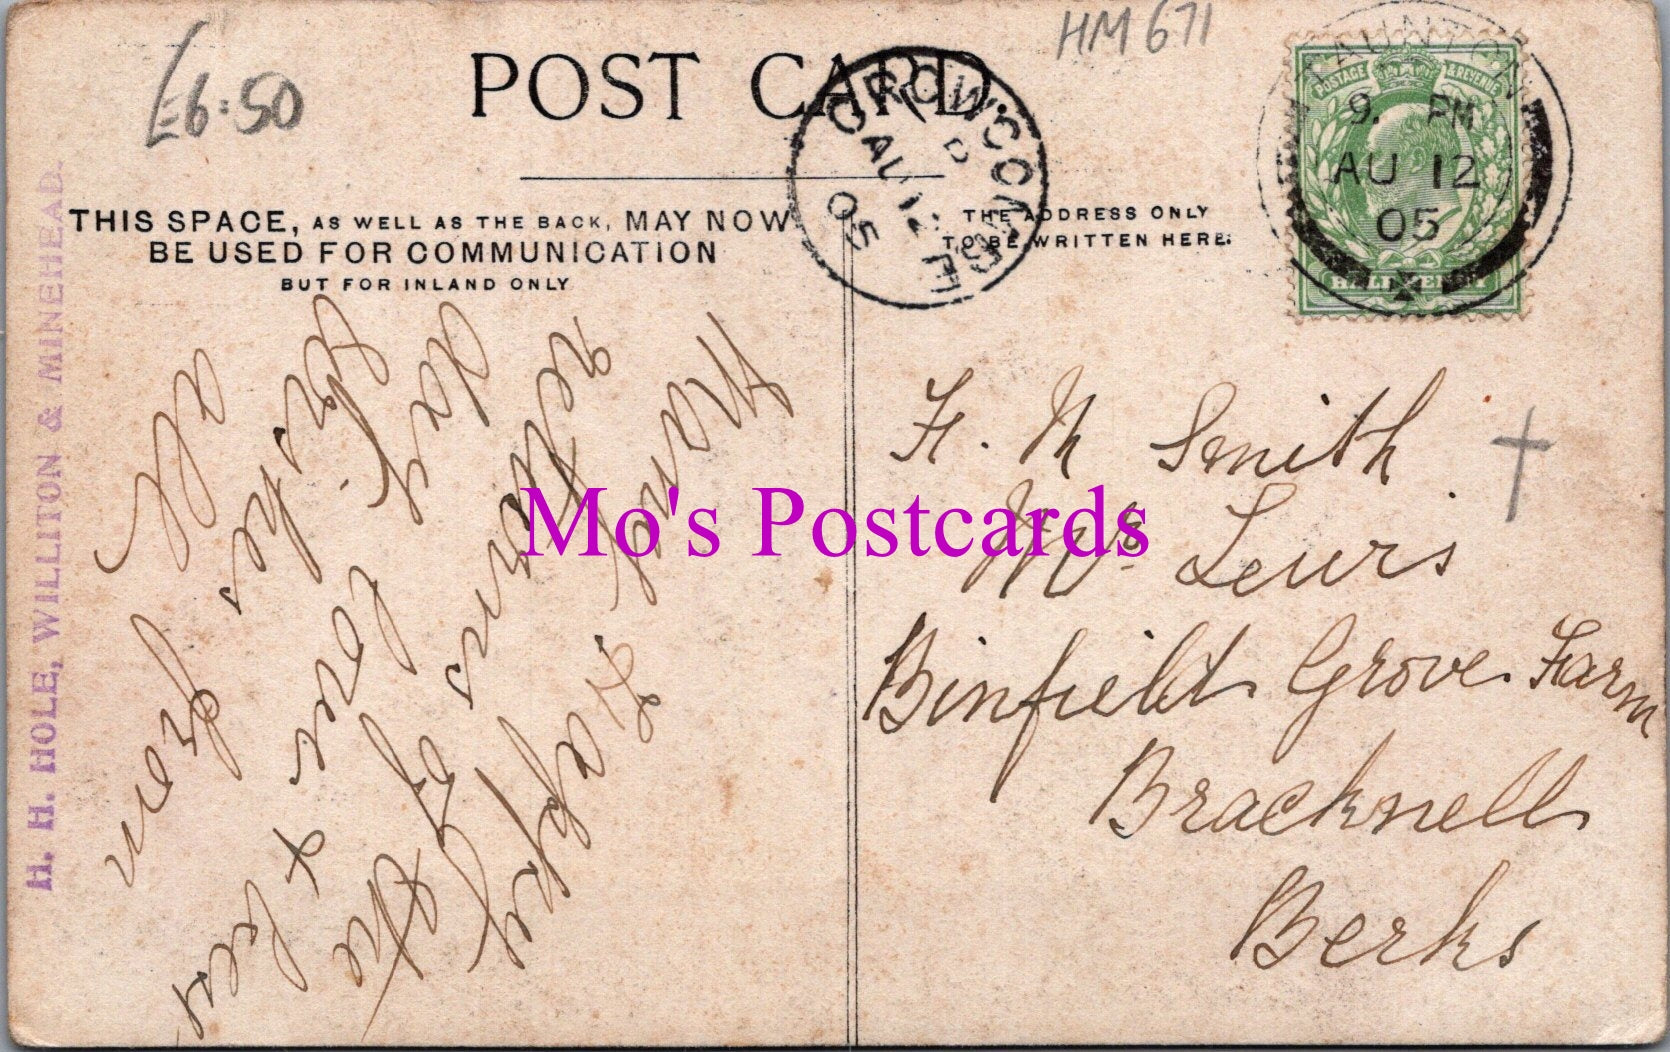 HM 671
£6:50
POST CARD
THIS SPACE, AS WELL AS THE BACK, MAY NOW
BE USED FOR COMMUNICATION
BUT FOR INLAND ONLY
THE ADDRESS ONLY
TO BE WRITTEN HERE.
CROWCOMBE
D
AU 12
05
TAUNTON
9. PM
AU 12
05
POSTAGE & REVENUE
HALFPENNY
H. H. HOLE, WILLITON & MINEHEAD.
Many Happy
returns of the
day love &
from
all
F. M Smith
Mr Lewis
Binfield Grove Farm
Bracknell
Berks
Mo's Postcards